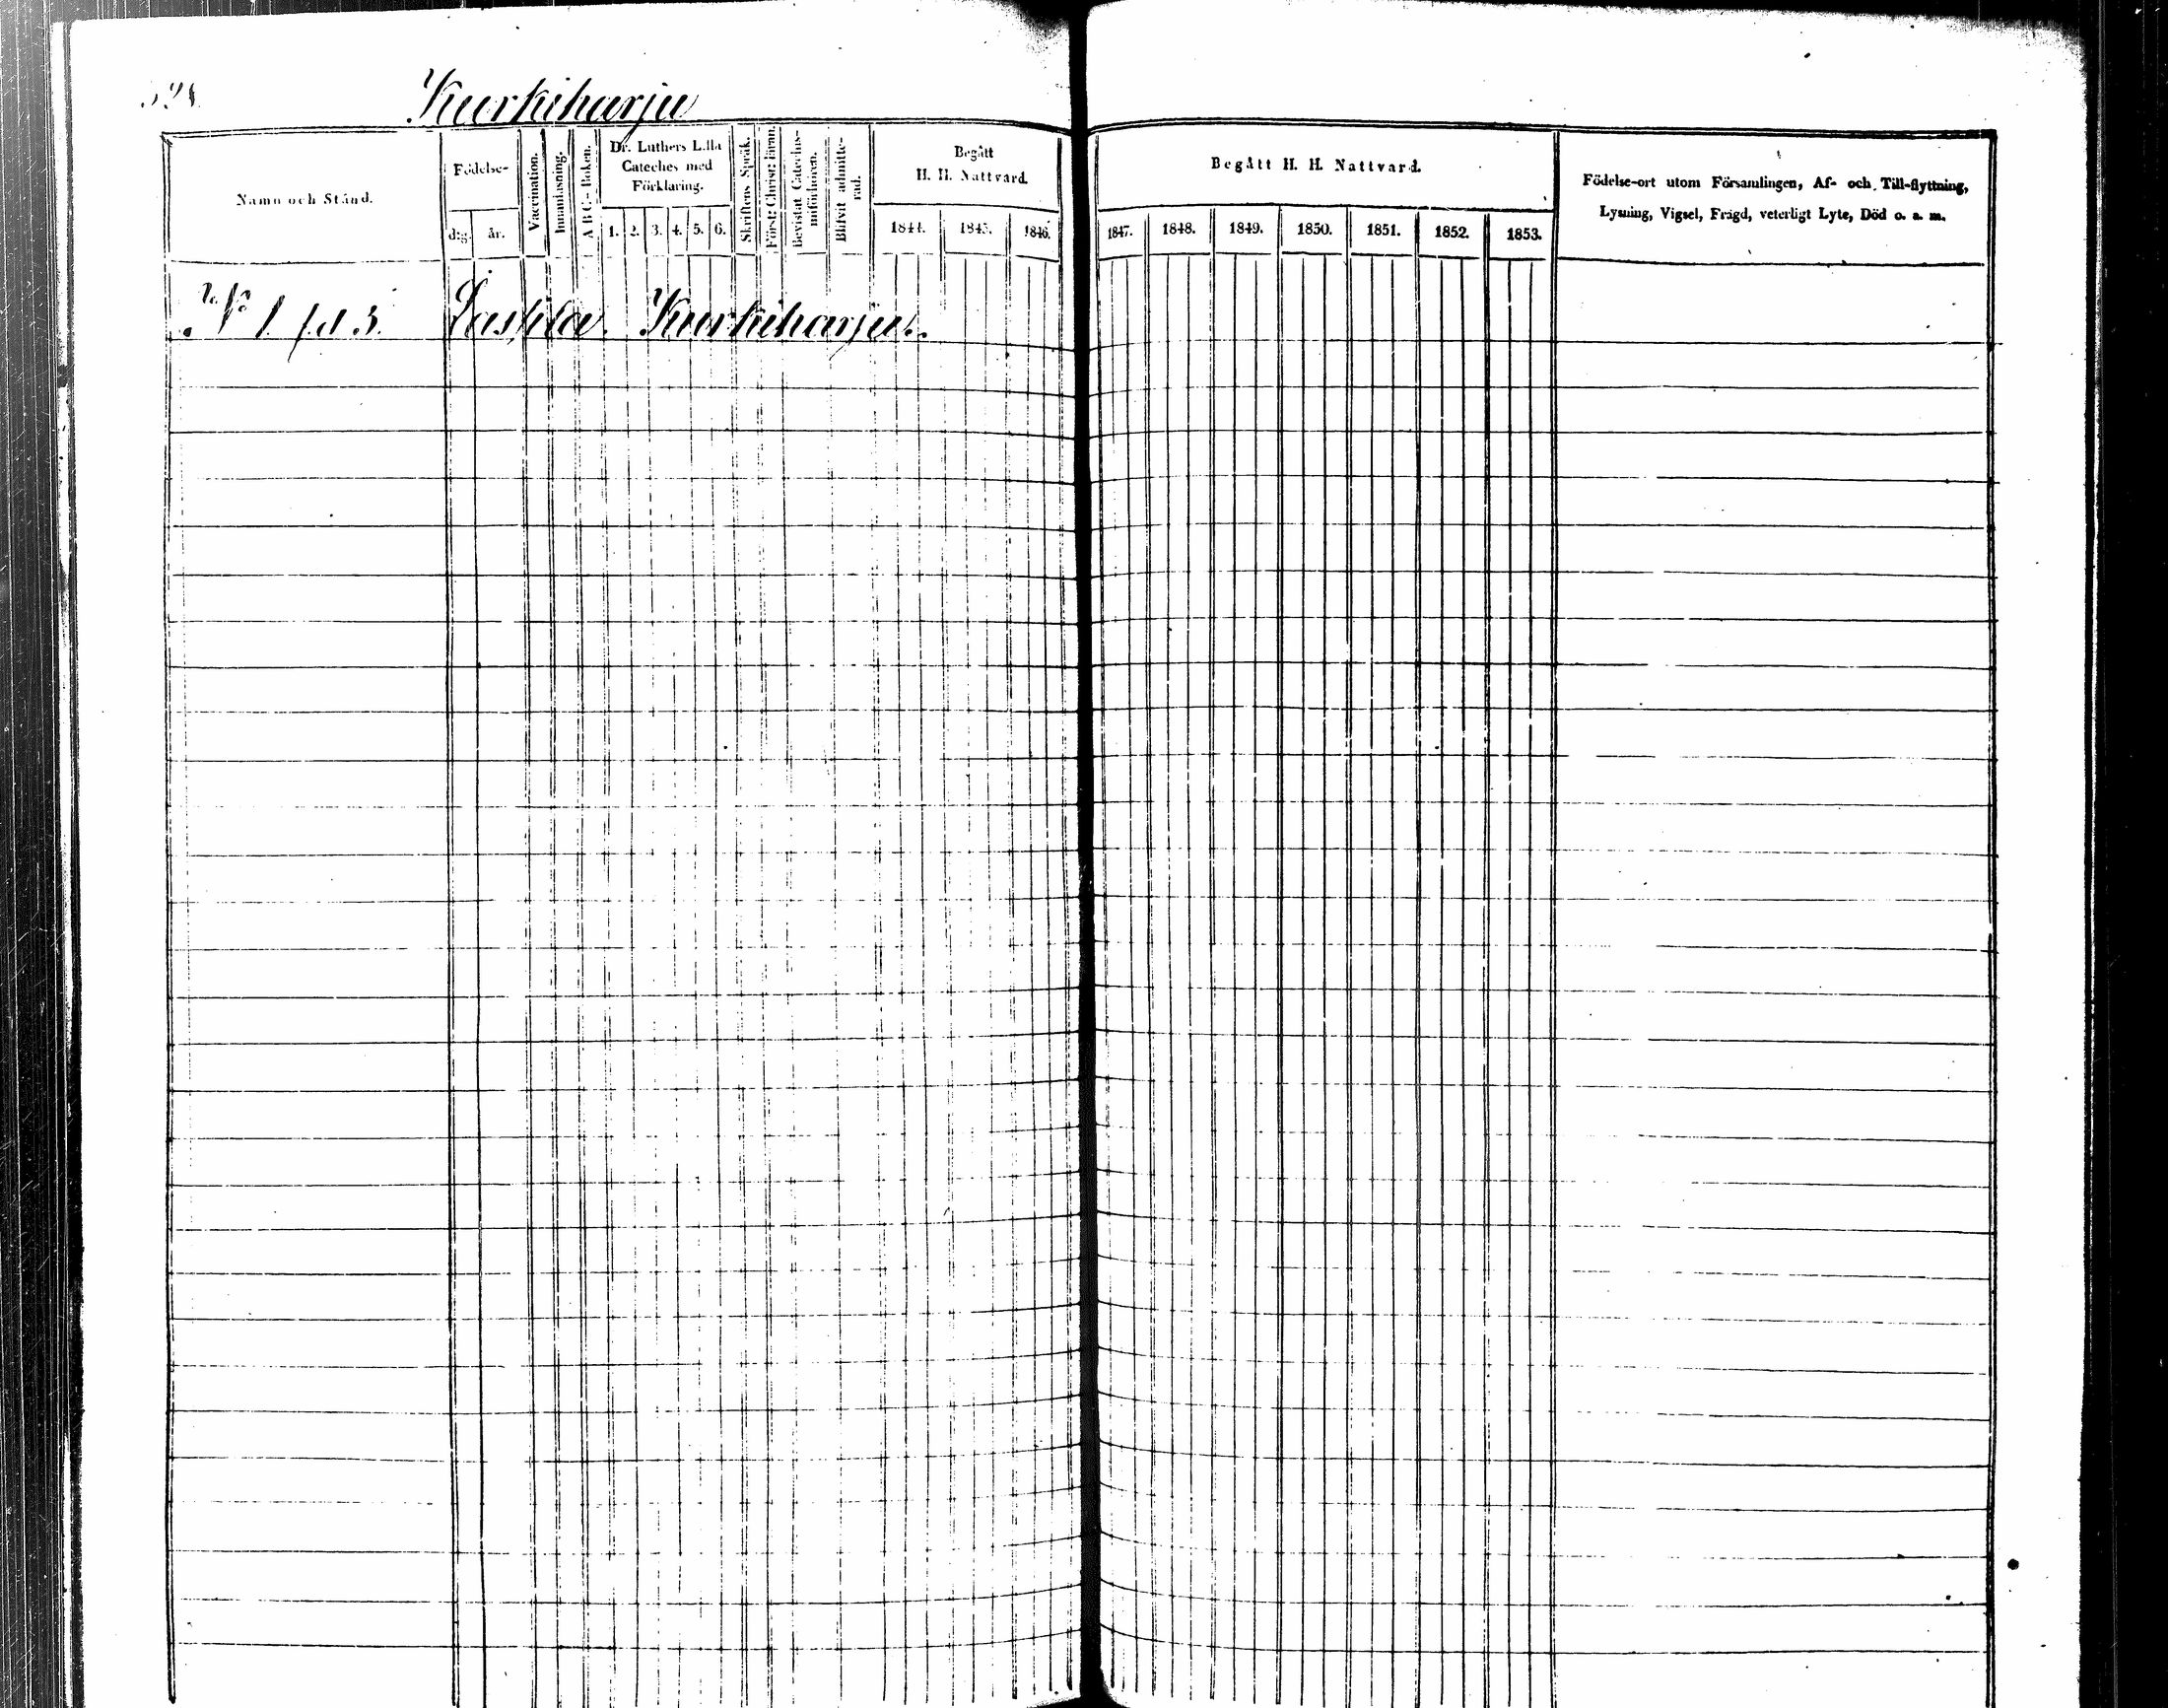 Kurkiharju
Namn och Stånd.
Födelse-
d:g.
år.
Vaccination.
Innanläsning.
A B C- Boken.
Dr. Luthers Lilla
Cateches med
Förklaring.
1. 2. 3. 4. 5. 6.
Skriftens Språk.
Bevistat Catechis-
miförhören.
Blifvit admitte-
rad.
Begått
H. H. Nattvard.
1844. 1845. 1846.
Begått H. H. Nattvard.
1847. 1848. 1849. 1850. 1851. 1852. 1853.
Födelse-ort utom Församlingen, Af- och Till-flyttning,
Lysning, Vigsel, Frägd, veterligt Lyte, Död o. s. m.
No 1 fd 3. Kurkiharju.